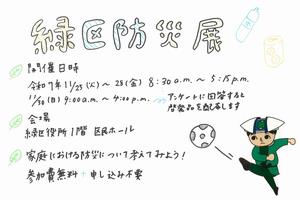 緑区防災展
開催日時
令和7年11/25(火)～28(金) 8:30a.m.～5:15p.m.
11/30(日) 9:00a.m.～4:00p.m.
アンケートに回答すると
啓発品を配布します
会場
緑区役所1階 区民ホール
家庭における防災について考えてみよう!
参加費無料+申し込み不要